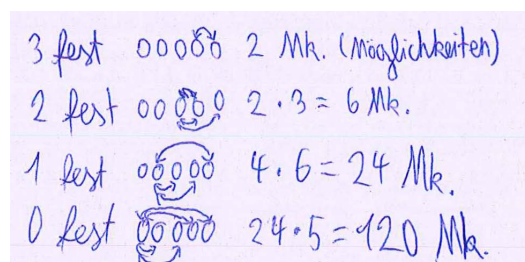 3 fest ooooo 2 Mk. (Möglichkeiten)
2 fest ooooo 2 · 3 = 6 Mk.
1 fest ooooo 4 · 6 = 24 Mk.
0 fest ooooo 24 · 5 = 120 Mk.